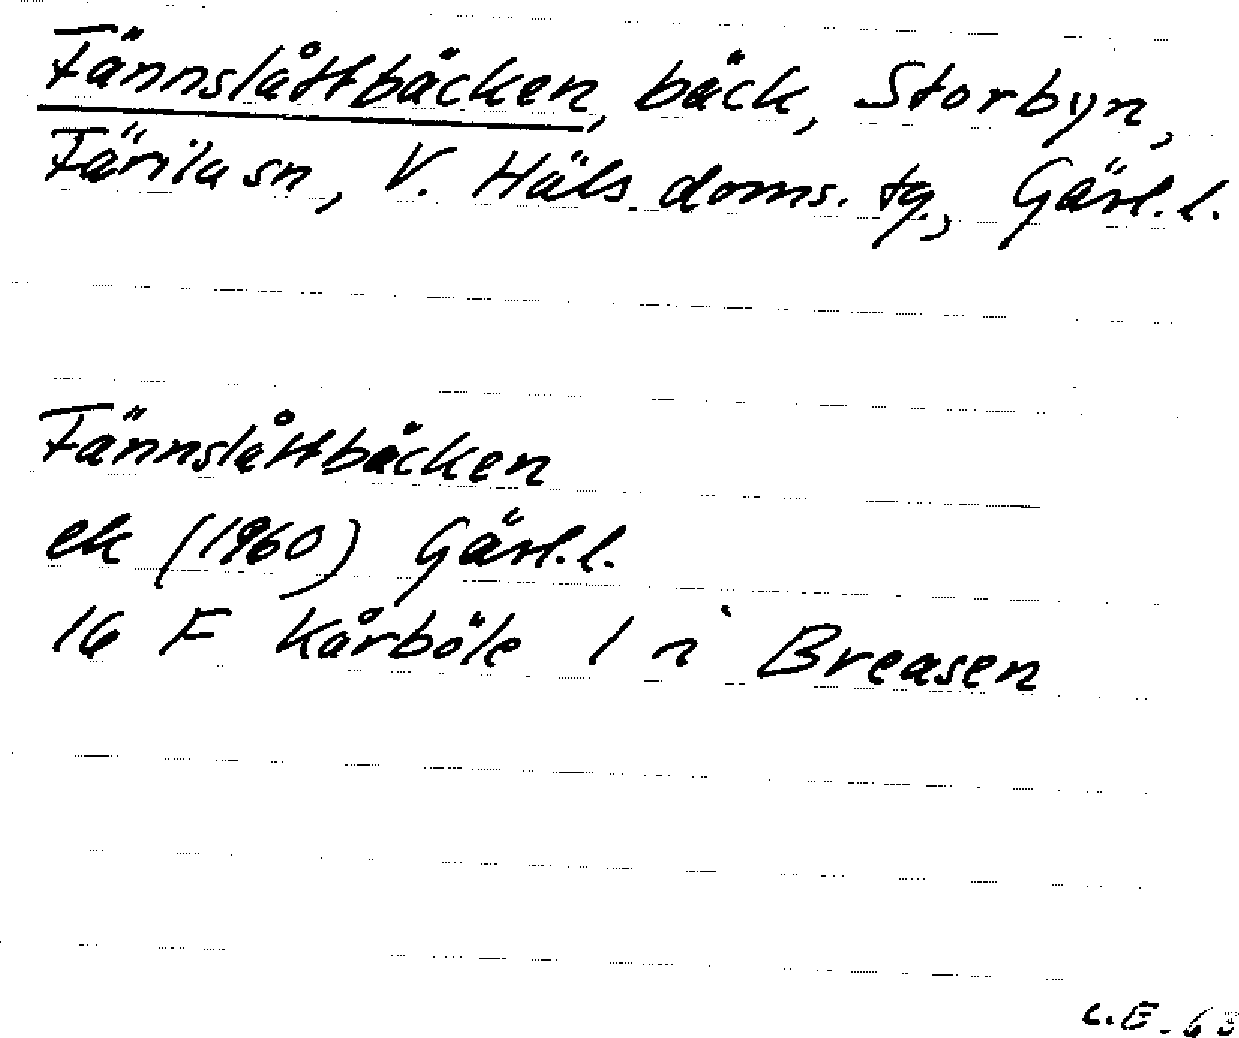 Fännslåttbäcken, bäck, Storbyn,
Färila sn, V. Häls. doms. tg., Gävl. l.
Fännslåttbäcken
ek (1960) Gävl. l.
16 F Kårböle 1 n i Breasen
C.E. -63